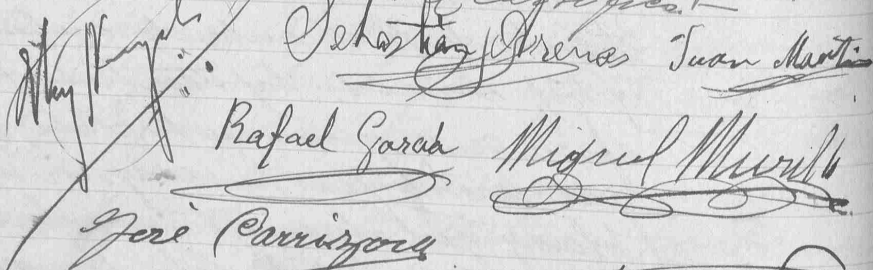 Sebastian Arenas Juan Martin
Rafael Garcia Miguel Murillo
José Carrizosa